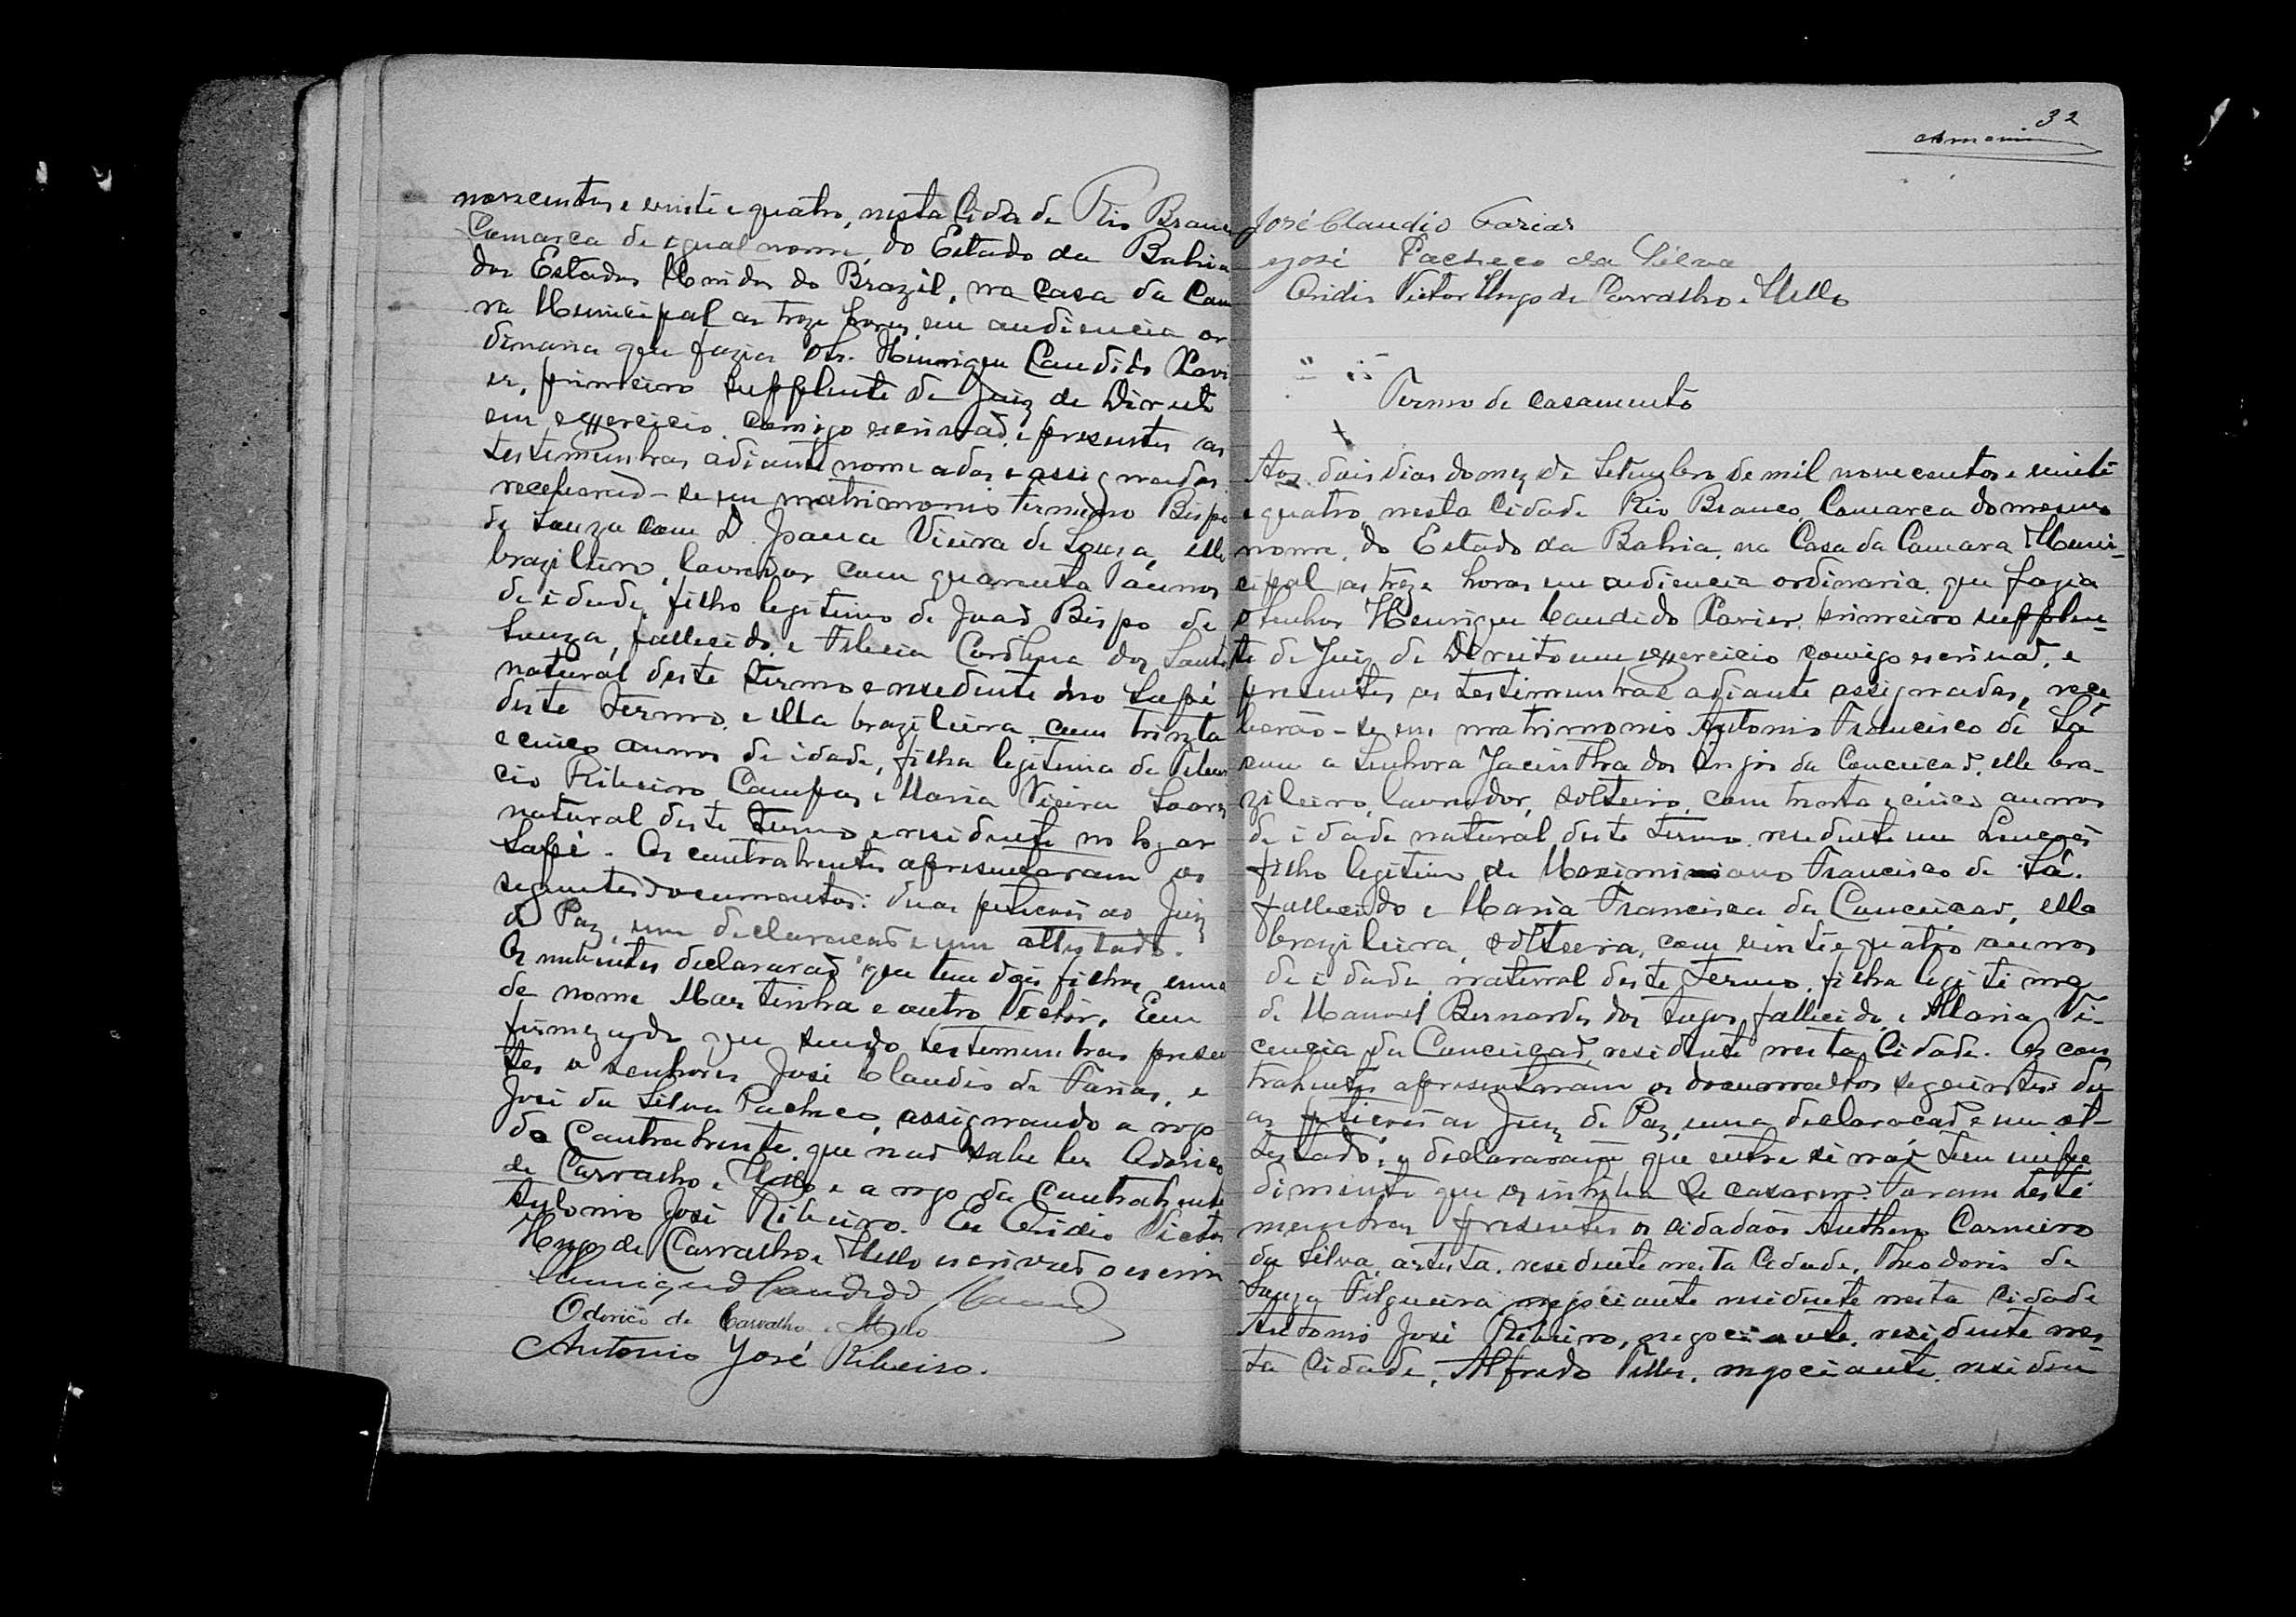 novecentos e vinte e quatro, nesta Cidade Rio Branco
Comarca de egual nome, do Estado da Bahia
dos Estados Unidos do Brazil, na Casa da Cam
ra Municipal as treze horas em audiencia or
dinaria que fazia Snr. Henrique Candido Xavi
er, primeiro supplente de Juiz de Direito
em exercicio comigo escrivão, e presentes as
testemunhas adiante nomeadas e assignadas
receberão-se em matrimonio Bispo
de Souza com D. Joana Vieira de Souza, elle
brazileiro, lavrador com quarenta annos
de idade, filho legitimo de João Bispo de
Souza, fallecido, e Felicia Carolina dos Santos
natural deste termo e residente no Sapé
deste Termo, e ella brazileira com trinta
e cinco annos de idade, filha legitima de
cio Ribeiro Campos e Maria Vieira Soares
natural deste Termo e residente no logar
Sapé. Os contrahentes apresentaram os
seguintes documentos: duas petições ao Juiz
de Paz, uma declaração e um attestado.
Os nubentes declararão que tem dois filhos, uma
de nome Martinha e outro Victor. Em
firmeza do que sendo testemunhas presen
tes os senhores José Claudio de Farias, e
José da Silva Pacheco, assignando a rogo
do Contrahente que não sabe ler Odorico
de Carvalho e Mello e a rogo da Contrahente
Antonio José Ribeiro. Eu Ovidio Victor
Hugo de Carvalho e Mello escrivão o escrevi
Henrique Candido Xavier
Odorico de Carvalho e Mello
Antonio José Ribeiro.
32
José Claudio Farias
José Pacheco da Silva
Ovidio Victor Hugo de Carvalho e Mello
Termo de casamento
Aos dois dias do mez de Setembro de mil novecentos e vinte
e quatro nesta Cidade Rio Branco, Comarca do mesmo
nome, do Estado da Bahia, na Casa da Camara Muni-
cipal as treze horas em audiencia ordinaria que fazia
o Senhor Henrique Candido Xavier, primeiro supplen-
te de Juiz de Direito em exercicio comigo escrivão, e
presentes as testemunhas adiante assignadas, rece
berão-se em matrimonio Antonio Francisco de Sá
com a Senhora Jacintha dos Anjos da Conceição, elle bra-
zileiro, lavrador, solteiro, com trinta e cinco annos
de idade natural deste termo residente em Lençoes
filho legitimo de Maximiniano Francisco de Sá,
fallecido e Maria Francisca da Conceição, ella
brazileira, solteira, com vinte e quatro annos
de idade, natural deste Termo, filha legitima
de Manoel Bernardes dos Anjos, fallecido, e Maria Vi-
cencia da Conceição, residente nesta Cidade. Os con
trahentes apresentaram os documentos seguintes: du-
as petições ao Juiz de Paz, uma declaração e um at-
testado, e declararam que entre si não tem impe
dimento que os inhiba de casarem. Foram teste
munhas presentes os cidadãos Anthero Carneiro
da Silva, artista, residente nesta Cidade, Theodoro de
Souza Filgueira, negociante residente nesta cidade
Antonio José Ribeiro, negociante, residente nes-
ta Cidade, Alfredo Telles, negociante, residen